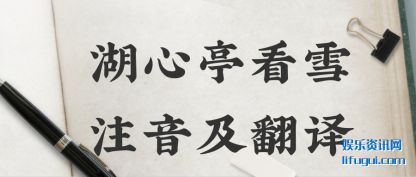 湖心亭看雪
注音及翻译
娱乐资讯网
lifugui.com